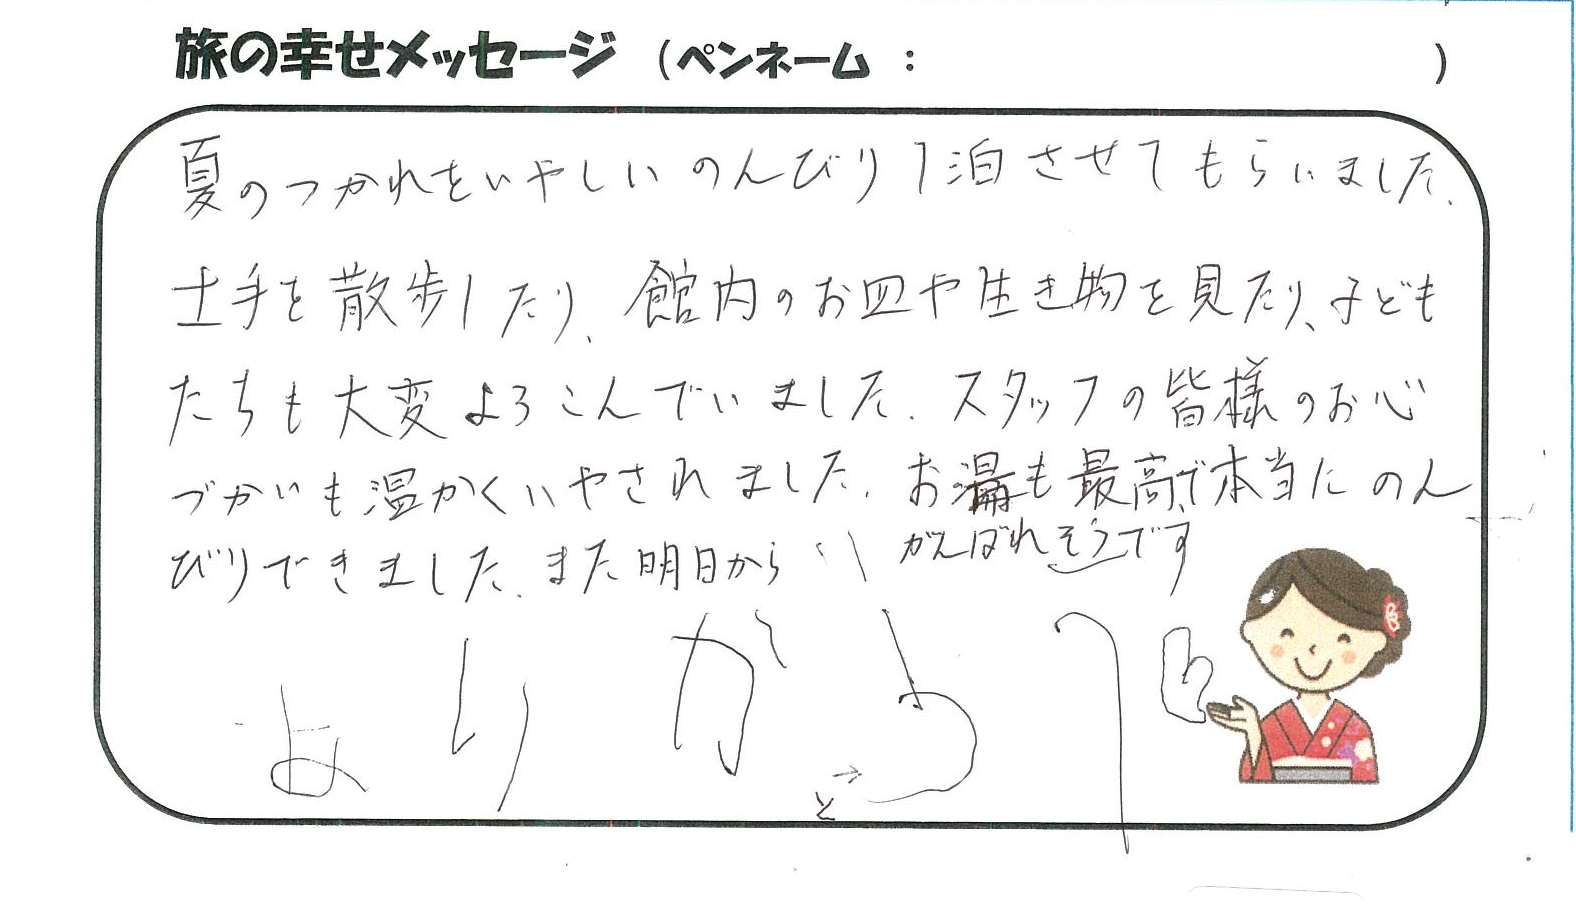 旅の幸せメッセージ （ペンネーム ： ）
夏のつかれをいやしい のんびり1泊させてもらいました。
土手を散歩したり、館内のお皿や生き物を見たり、子ども
たちも大変よろこんでいました。スタッフの皆様のお心
づかいも温かくいやされました。お湯も最高で本当にのん
びりできました。また明日から がんばれそうです
よりがと う